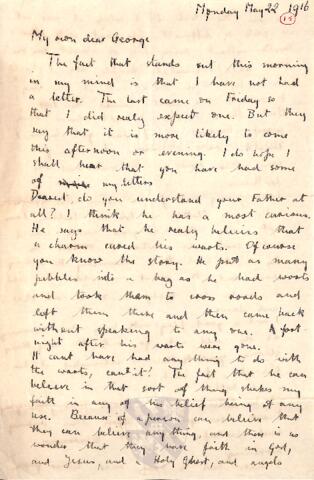 Monday May 22 1916
(15)
My own dear George
The fact that stands out this morning
in my mind is that I have not had
a letter. The last came on Friday so
that I did realy expect one. But they
say that it is more likely to come
this afternoon or evening. I do hope I
shall hear that you have had some
of my letters
Dearest do you understand your Father at
all? I think he has a most curious.
He says that he realy believes that
a charm cured his warts. Of course
you know the story. He put as many
pebbles into a bag as he had warts
and took them to cross roads and
left them there and then came back
without speaking to any one. A fort
night after his warts were gone.
It cant have had any thing to do with
the warts, can it? The fact that he can
believe in that sort of thing shakes my
faith in any of his belief being of any
use. Because if a person can believe that
they can believe any thing, and there is no
wonder that they have faith in God,
and Jesus, and a Holy Ghost, and angels